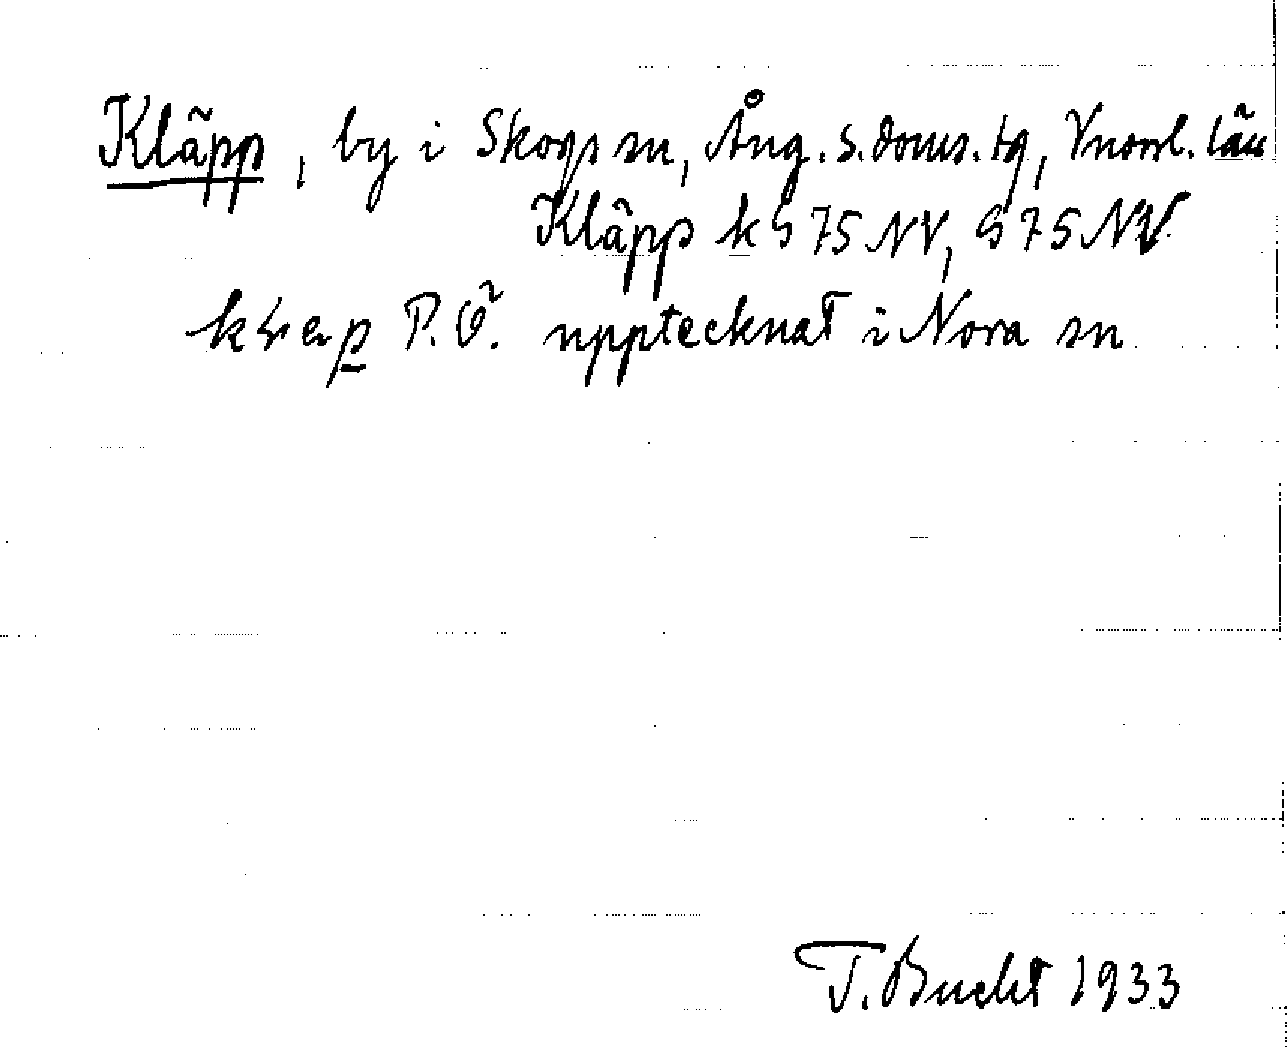 Kläpp, by i Skogs sn, Ång. s. doms. tg, Vnorrl. län
Kläpp k S 75 NV, S 75 NV.
P. Ö. upptecknat i Nora sn
T. Bucht 1933